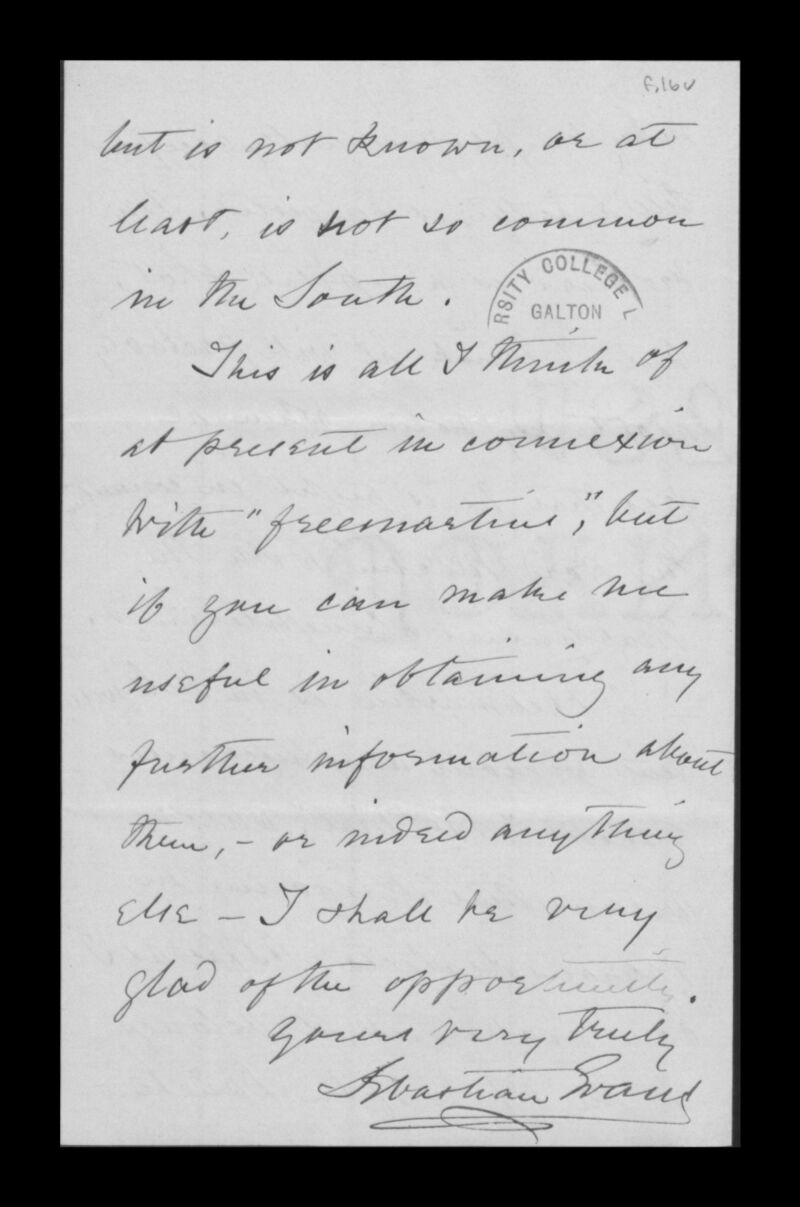 f.16v
but is not known, or at
least, is not so common
in the South.
RSITY COLLEGE L
GALTON
This is all I think of
at present in connexion
with "freemartins", but
if you can make me
useful in obtaining any
further information about
them, - or indeed anything
else - I shall be very
glad of the opportunity.
Yours very truly
Sebastian Evans